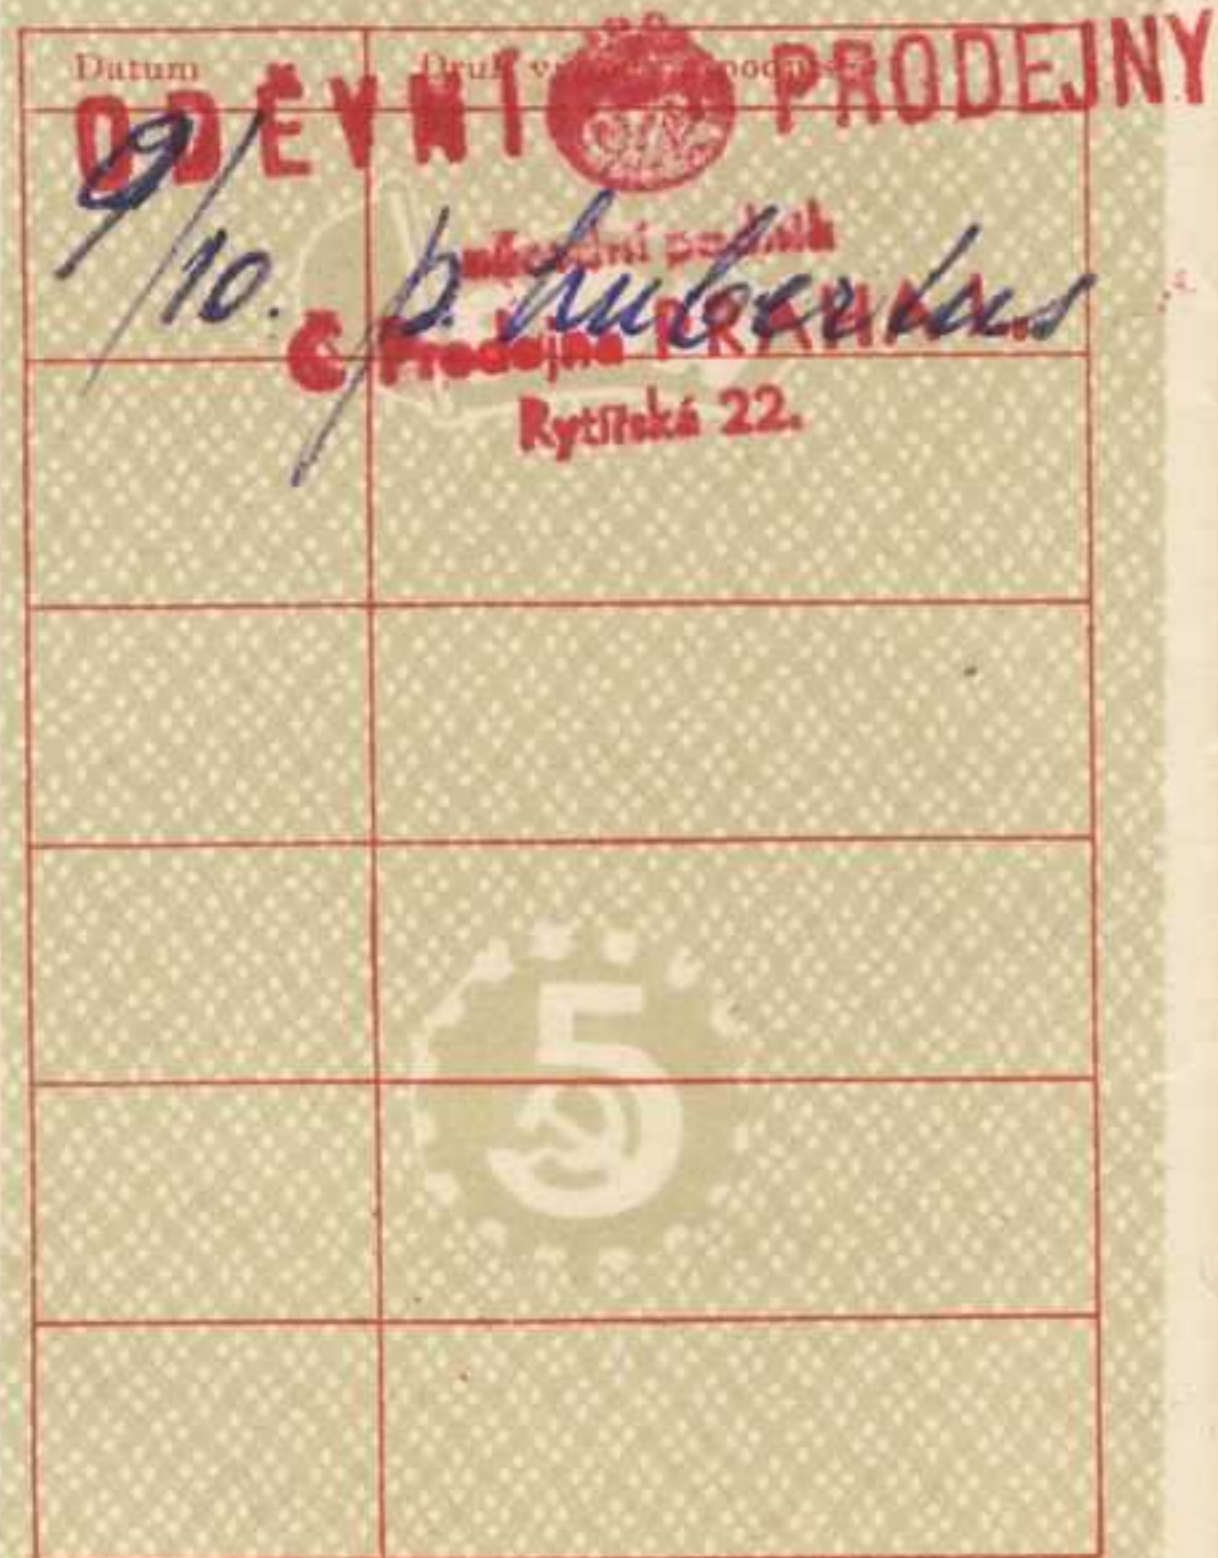 Datum Druh
ODĚVNÍ PRODEJNY
9/10. p. hubertus
národní podnik
Prodejna PRAHA I.
Rytířská 22.
5